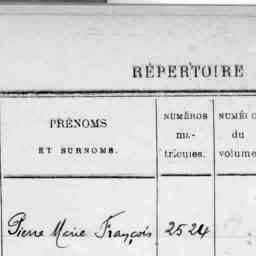 RÉPERTOIRE
PRÉNOMS
ET SURNOMS.
NUMÉROS
ma-
tricules.
du
volume
Pierre Marie François 2524